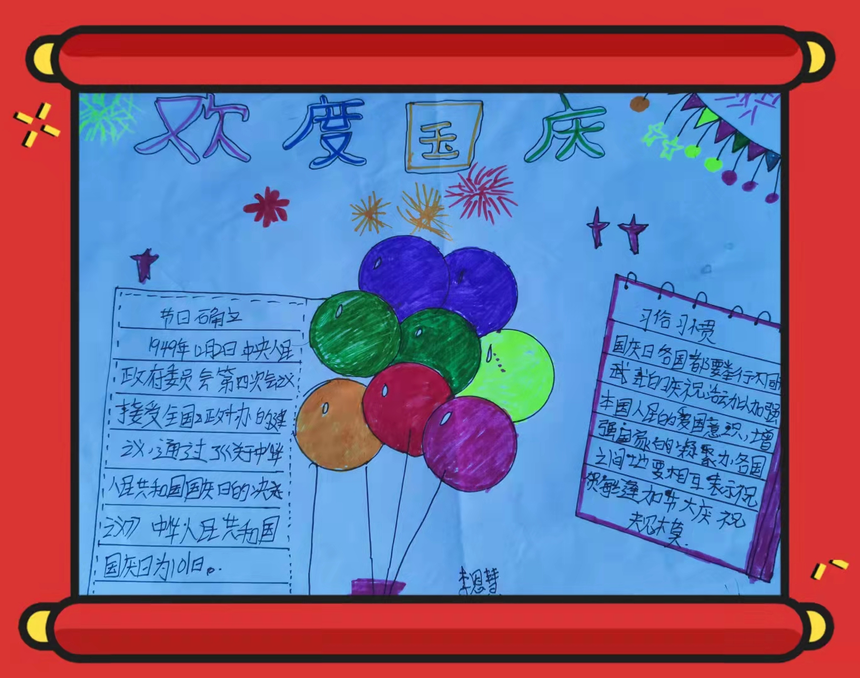 欢度国庆
节日确立
1949年12月2日中央人民
政府委员会第四次会议
接受全国政协的建
议,通过了《关于中华
人民共和国国庆日的决定
》 中华人民共和国
国庆日为10月1日。
习俗习惯
国庆日各国都要举行不同
形式的庆祝活动以加强
本国人民的爱国意识,增
强国家的凝聚力,各国
之间也要相互表示祝
贺 逢 大庆 祝
规模
李恩慧